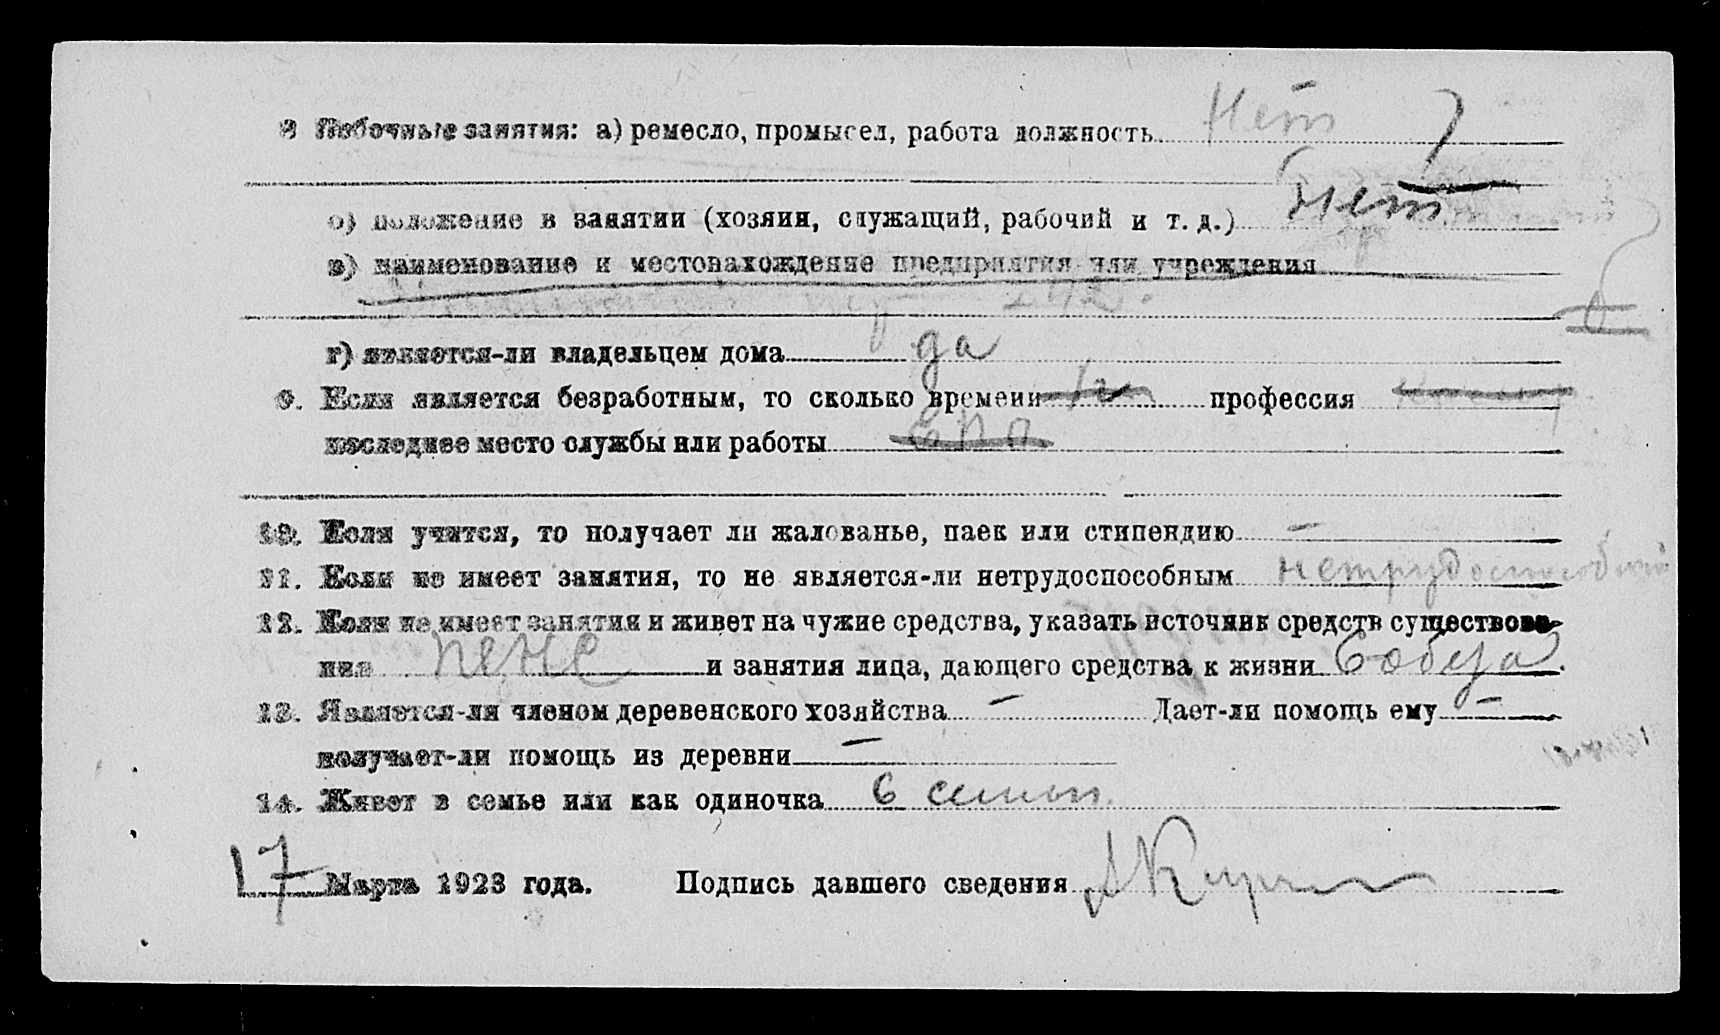 8 Побочные занятия: а) ремесло, промысел, работа должность Нет
б) положение в занятии (хозяин, служащий, рабочий и т. д.) Нет
в) наименование и местонахождение предприятия или учреждения
г) является-ли владельцем дома да
9. Если является безработным, то сколько времени профессия
последнее место службы или работы
10. Если учится, то получает ли жалованье, паек или стипендию —
11. Если не имеет занятия, то не является-ли нетрудоспособным нетрудоспособный
12. Если не имеет занятия и живет на чужие средства, указать источник средств существова-
ния и занятия лица, дающего средства к жизни Собеза.
13. Является-ли членом деревенского хозяйства — Дает-ли помощь ему —
получает-ли помощь из деревни —
14. Живет в семье или как одиночка в семьи
17 Марта 1923 года. Подпись давшего сведения